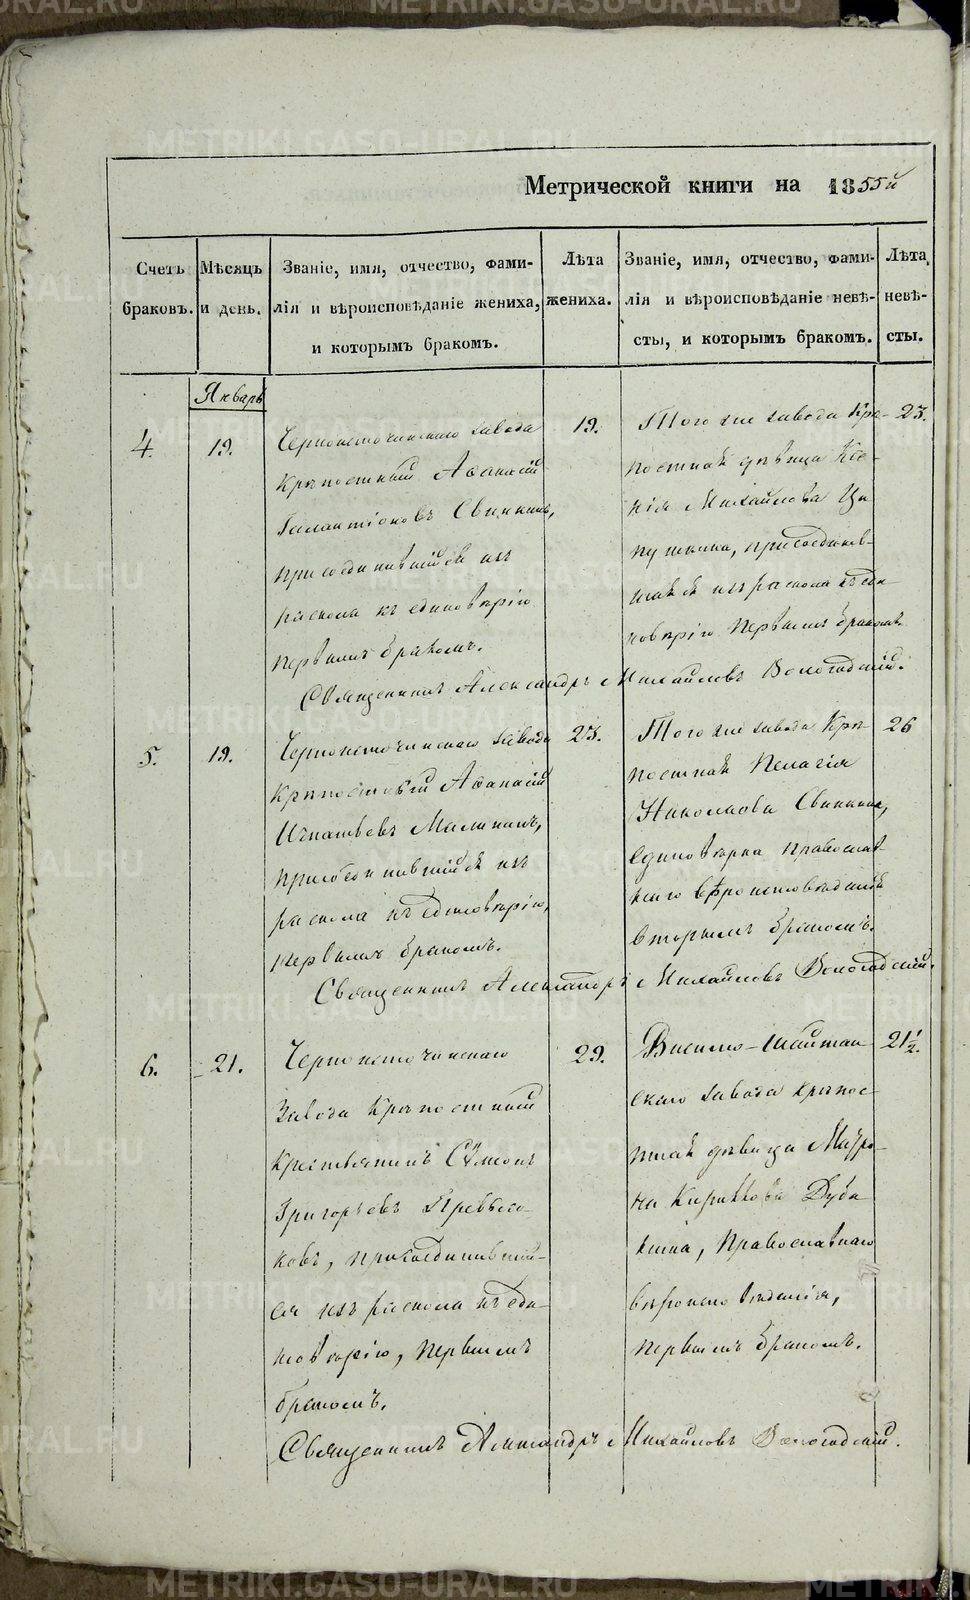 Метрической книги на 1855й
Счетъ браковъ.
Мѣсяцъ и день.
Званіе, имя, отчество, фами-
лія и вѣроисповѣданіе жениха,
и которымъ бракомъ.
Лѣта жениха.
Званіе, имя, отчество, фами-
лія и вѣроисповѣданіе невѣ-
сты, и которымъ бракомъ.
Лѣта невѣ-
сты.
Январь
4.
19.
Черноисточинскаго завода
крѣпостный Аѳанасій
Галактіоновъ Свинкинъ,
присоединившійся изъ
раскола къ единовѣрію
первымъ бракомъ.
19.
Того же завода Крѣ-
постная дѣвица Ксе-
нія Михайлова
присоединив-
шаяся изъ раскола къ еди-
новѣрію первымъ бракомъ
23.
Священникъ Александръ Михайловъ Вологодскій.
5.
19.
Черноисточинскаго завода
крѣпостный Аѳанасій
Игнатьевъ Малининъ,
присоединившійся изъ
раскола къ единовѣрію,
первымъ бракомъ.
23.
Того же завода Крѣ-
постная Пелагія
Николаева Свинкина,
единовѣрка православ-
наго вѣроисповѣданія
вторымъ бракомъ.
26
Священникъ Александръ Михайловъ Вологодскій.
6.
21.
Черноисточинскаго
завода крѣпостный
крестьянинъ Сѵмеонъ
Григорьевъ
присоединившій-
ся изъ раскола къ еди-
новѣрію, первымъ
бракомъ.
29.
Висимо-Шайтан-
скаго завода крѣпос-
тная дѣвица Мавро-
на Кириллова Дуба
кина, Православнаго
вѣроисповѣданія,
первымъ бракомъ.
21 1/2.
Священникъ Александръ Михайловъ Вологодскій.
METRIKI.GASO-URAL.RU